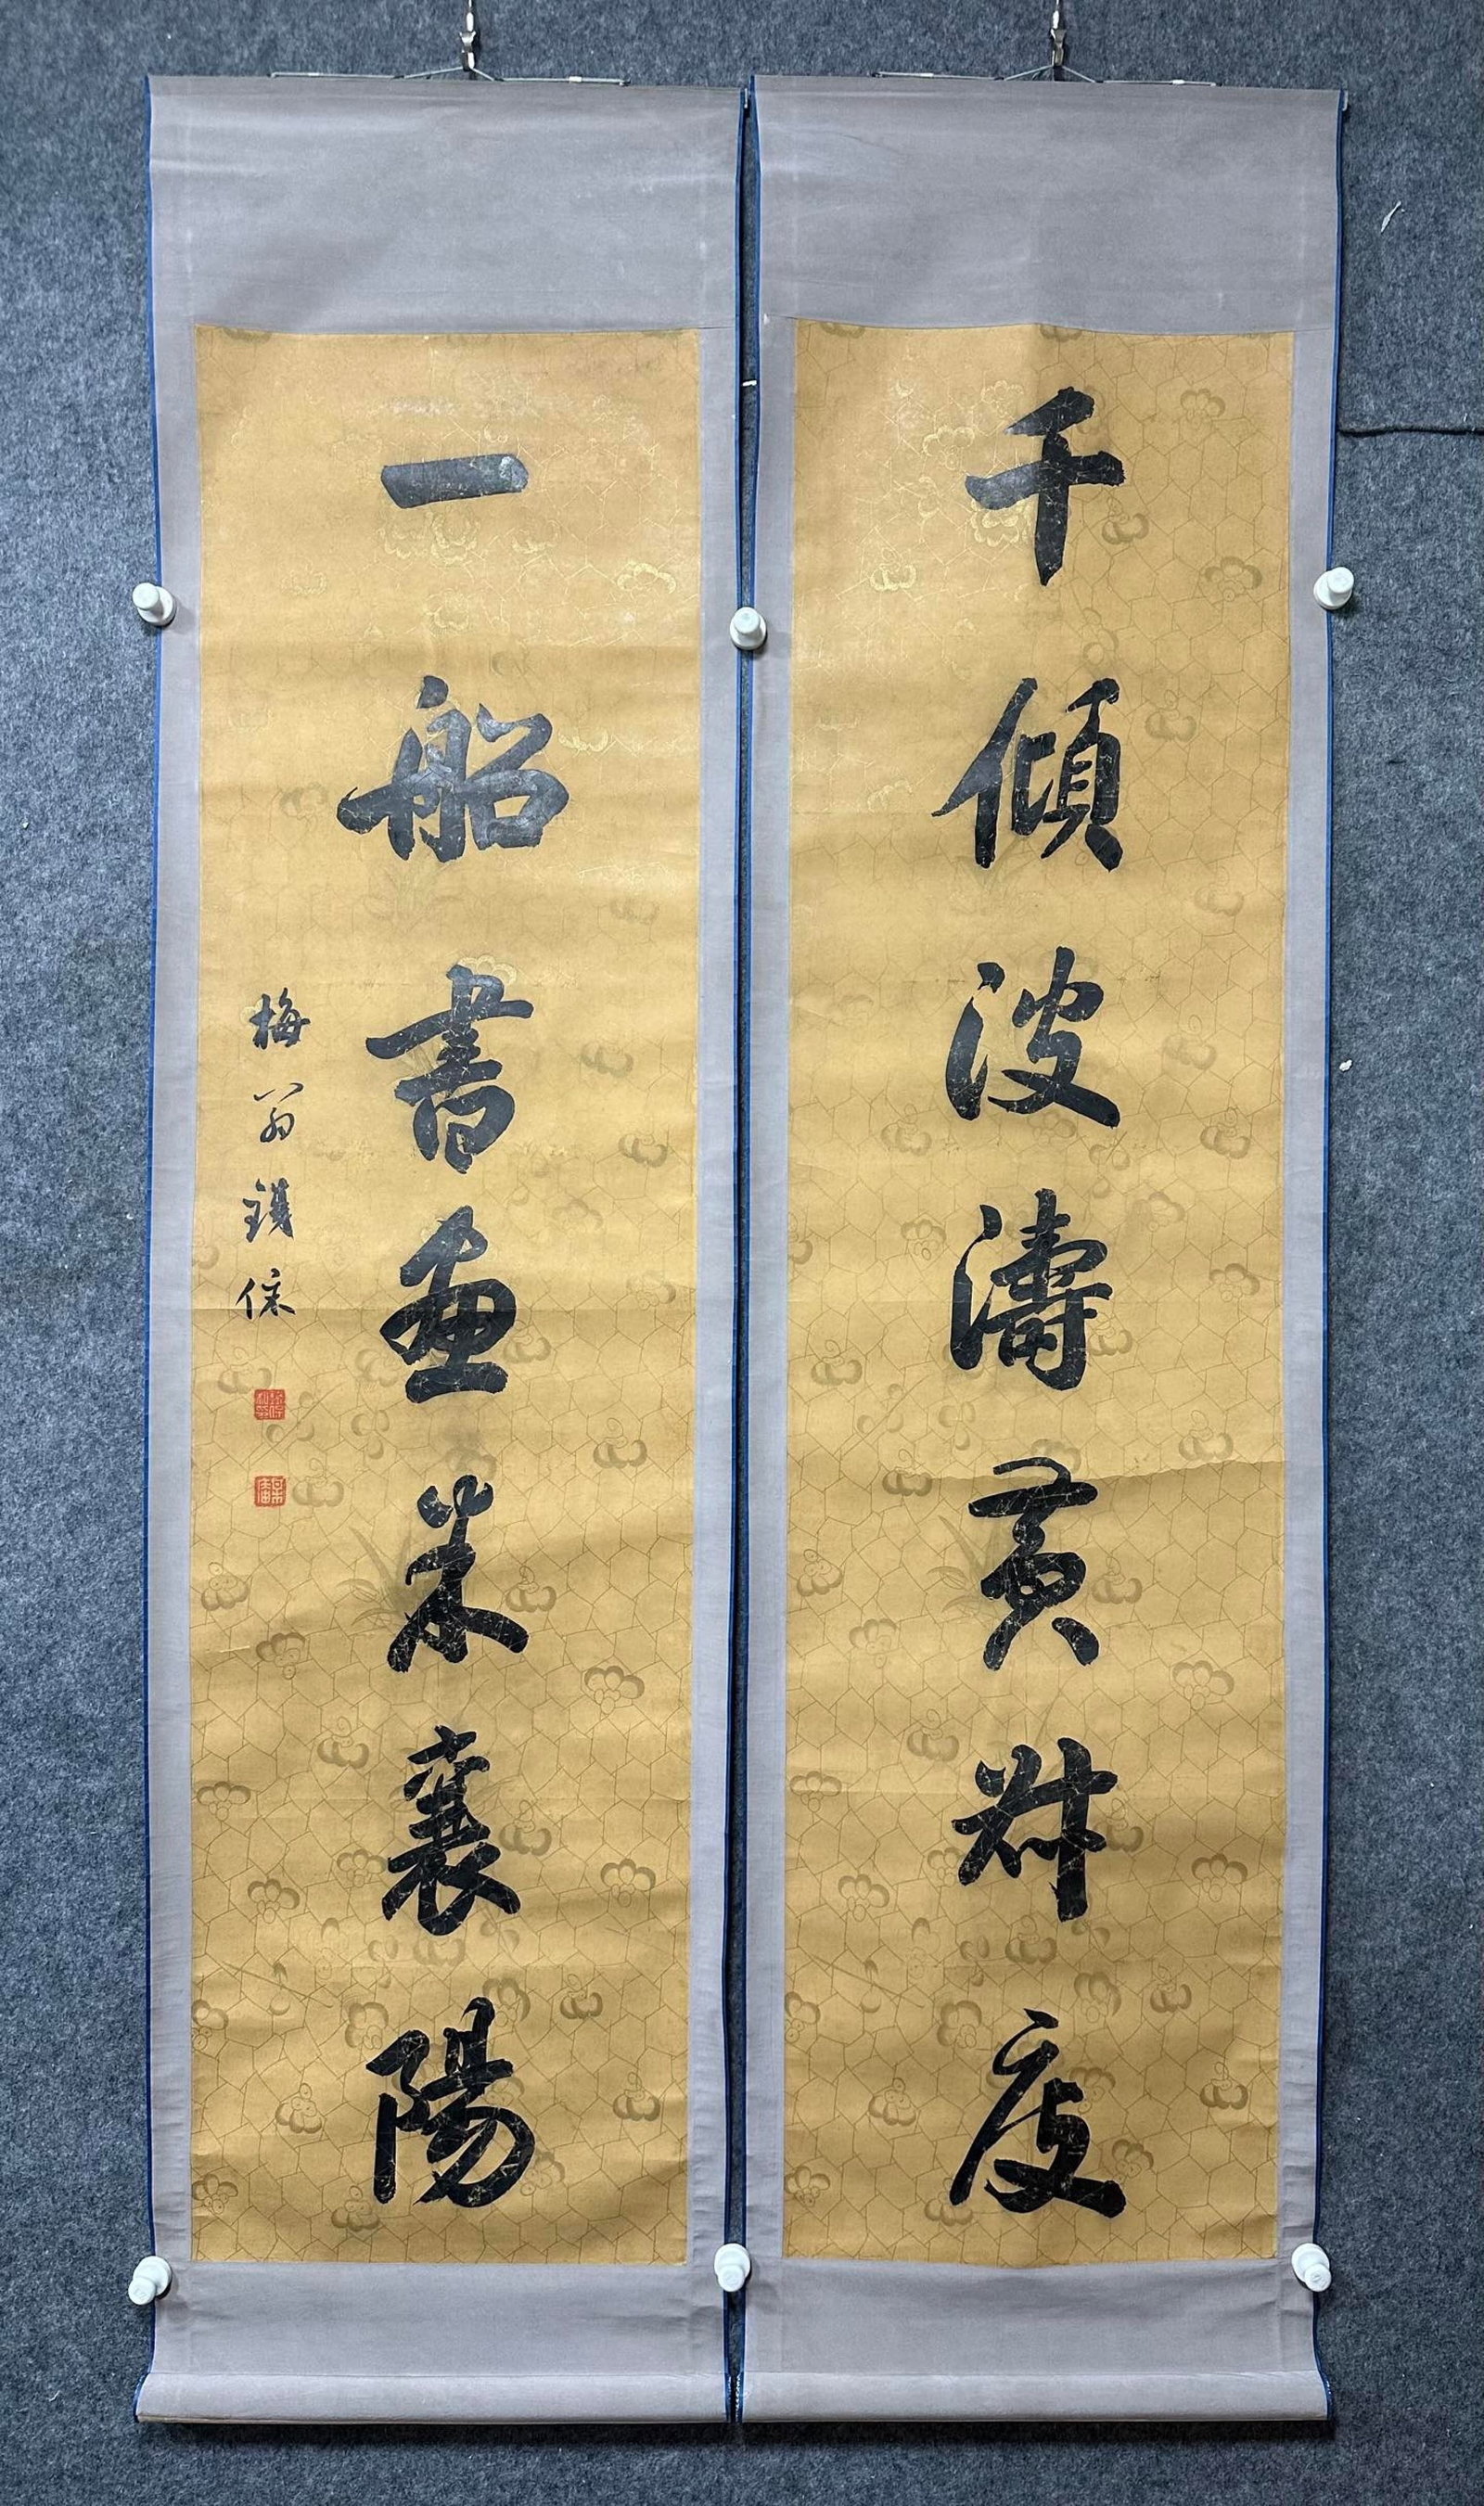 千傾波濤黃叔度
一船書畫米襄陽
梅翁鐵保